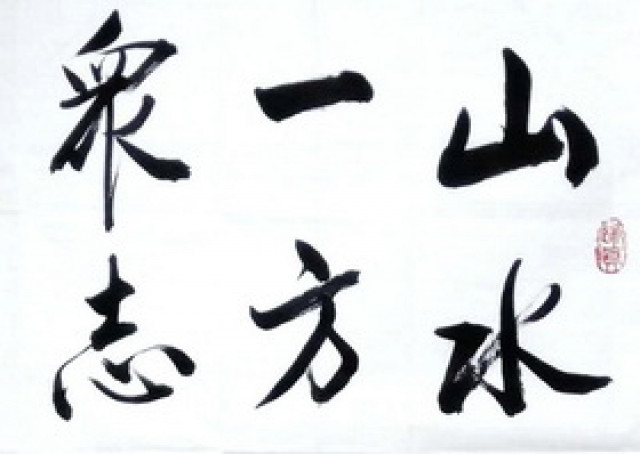 山水
一方
眾志